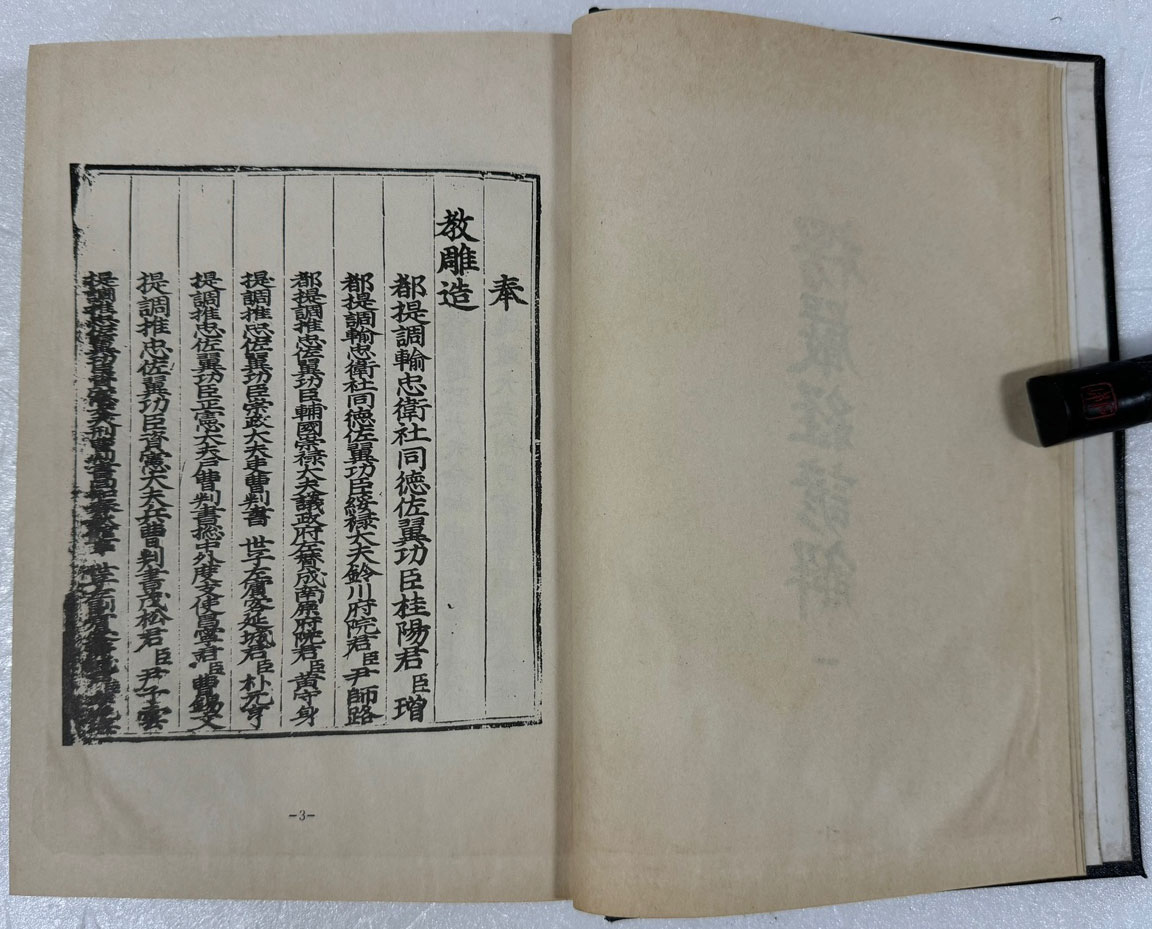 奉
教雕造
都提調輸忠衛社同徳佐翼功臣桂陽君臣璔
都提調輸忠衛社同徳佐翼功臣綏禄大夫鈴川府院君臣尹師路
都提調推忠佐翼功臣輔國崇禄大夫議政府左贊成南原府院君臣黃守身
提調推忠佐翼功臣崇政大夫吏曹判書 世子左賓客延城君臣朴元亨
提調推忠佐翼功臣正憲大夫戶曹判書摠中外度支使昌寧君臣曹錫文
提調推忠佐翼功臣資憲大夫兵曹判書茂松君臣尹子雲
提調推忠佐翼功臣
-3-